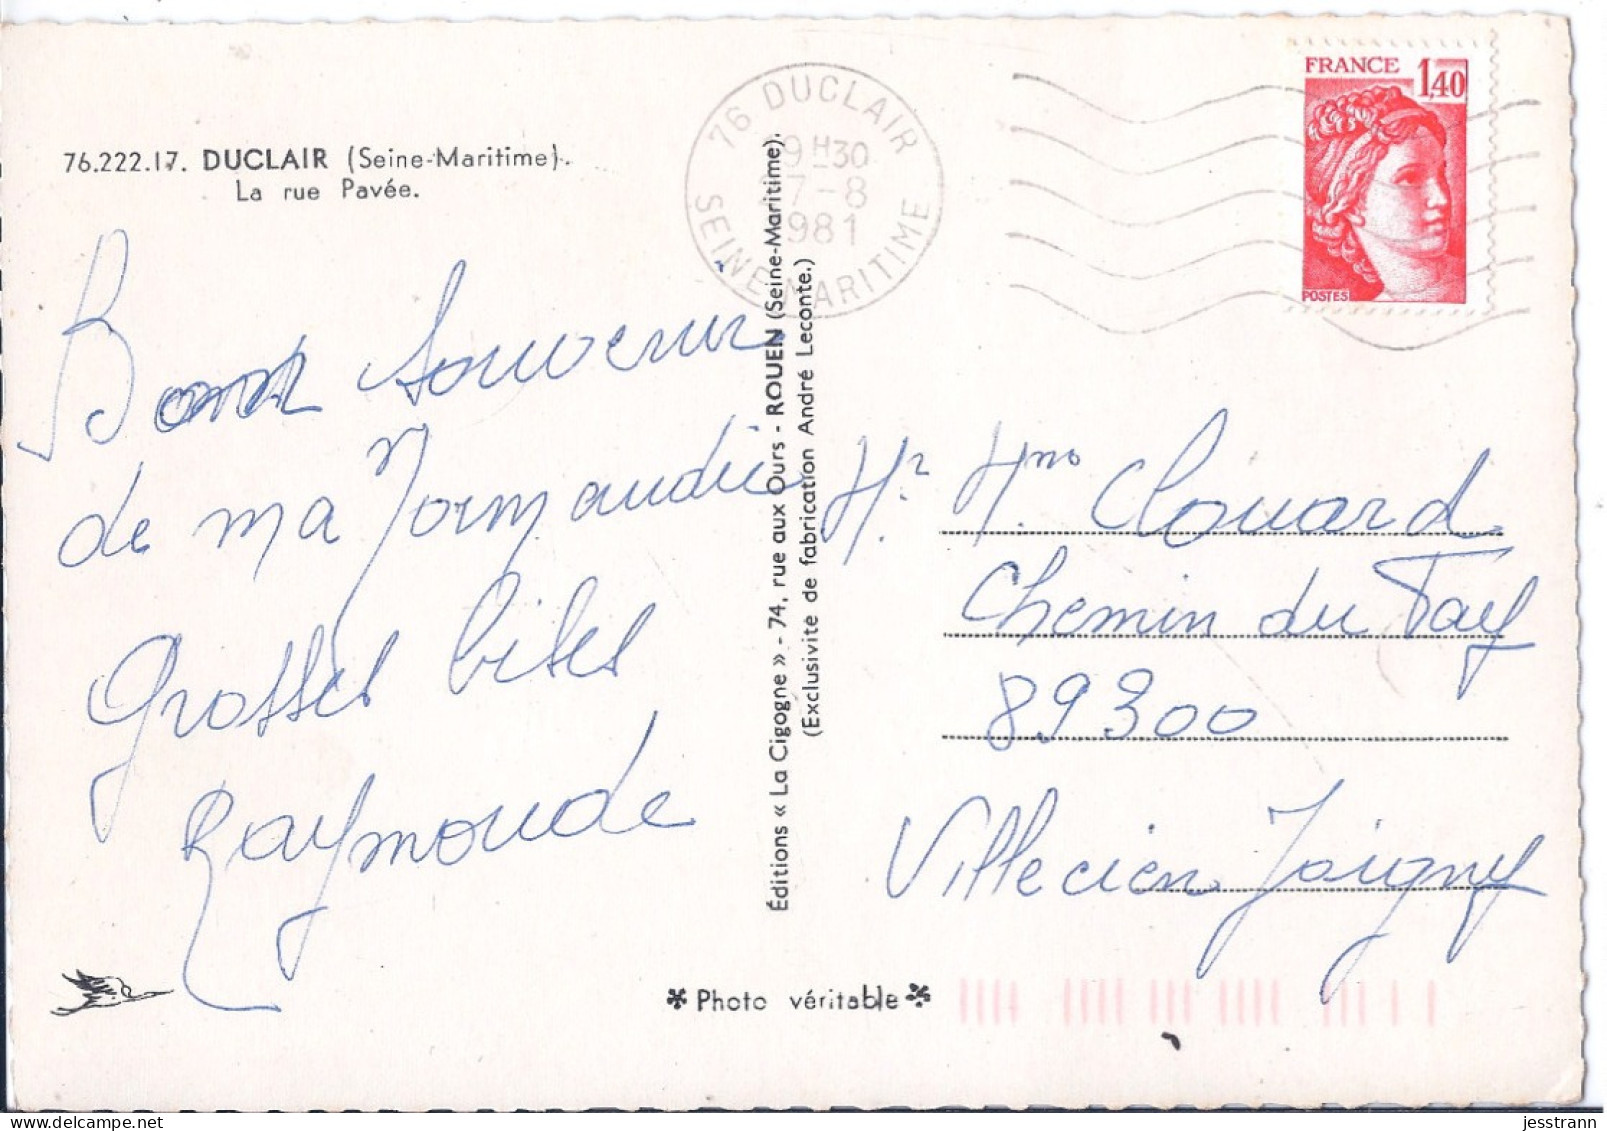 76.222.17. DUCLAIR (Seine-Maritime).
La rue Pavée.
Bons souvenir
de ma Normandie
Grosses bises
Raymonde
Photo véritable
Éditions « La Cigogne » - 74, rue aux Ours - ROUEN (Seine-Maritime).
(Exclusivité de fabrication André Leconte.)
76 DUCLAIR
19 H 30
7-8
1981
SEINE MARITIME
FRANCE 1,40
POSTES
Mr. Mme Clouard
Chemin du Tay
89300
Villecien Joigny
jesstrann